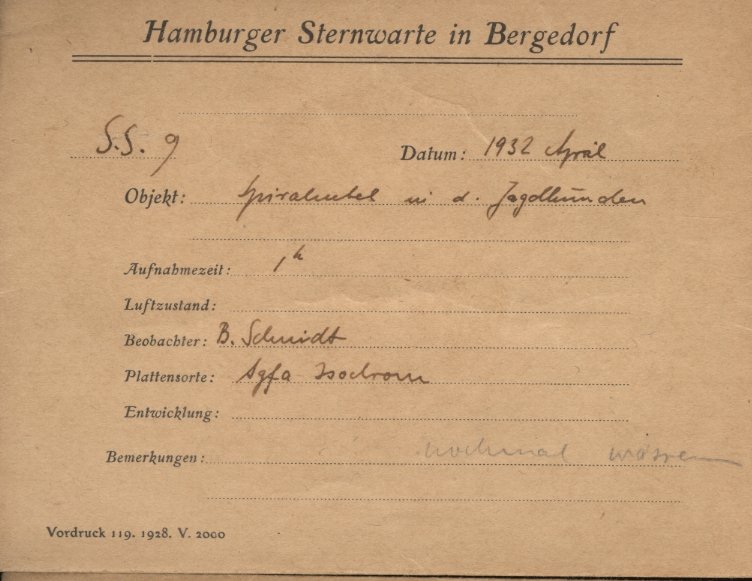 Hamburger Sternwarte in Bergedorf
S.S. 9
Datum: 1932 April
Objekt: Spiralnebel in d. Jagdhunden
Aufnahmezeit: 1h
Luftzustand:
Beobachter: B. Schmidt
Plattensorte: Agfa Isochrom
Entwicklung:
Bemerkungen: nochmal wässern
Vordruck 119. 1928. V. 2000